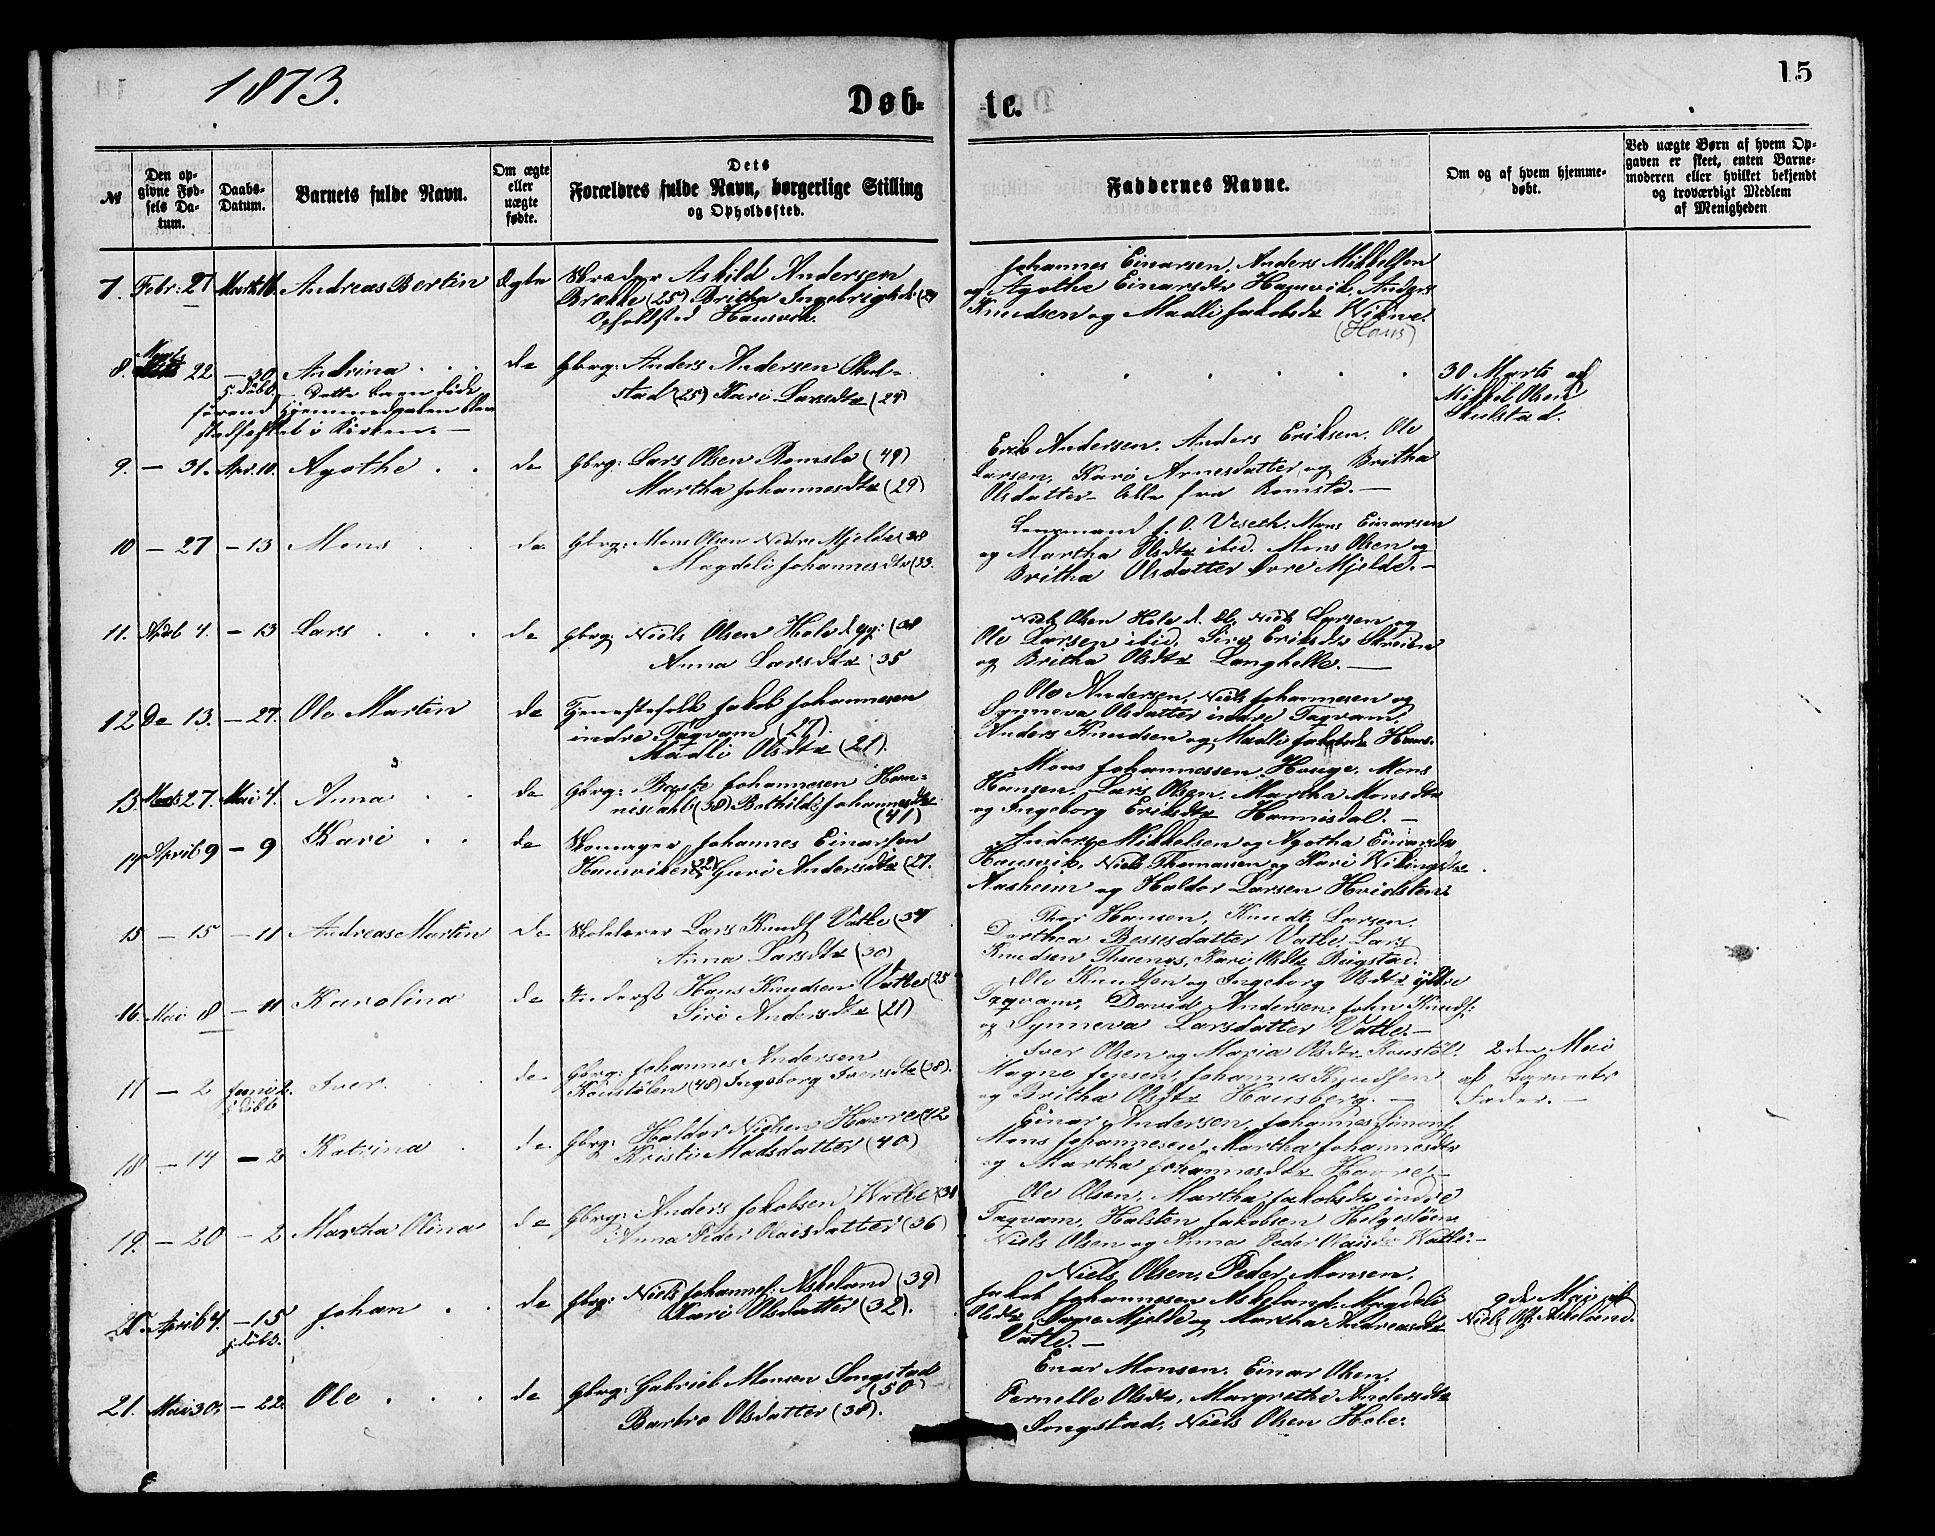 1873.
Døb-
te.
15
№
Den op-
givne Fød-
sels Da-
tum.
Daabs-
Datum.
Barnets fulde Navn.
Om ægte
eller
uægte
fødte.
Dets
Forældres fulde Navn, borgerlige Stilling
og Opholdssted.
Faddernes Navne.
Om og af hvem hjemme-
døbt.
Ved uægte Børn af hvem Op-
gaven er skeet, enten Barne-
moderen eller hvilket bekjendt
og troværdigt Medlem
af Menigheden
7. Febr: 27 Marts 16. Andreas Bertin Ægte Skræder Askild Andersen
Brække (25) Britha Ingebrigtsdr
Opholdsted Hausvik.
Johannes Einarsen, Anders Mikkelsen
og Agothe Einarsdtr Hausvik, Anders
Knudsen og Madli Jakobsdtr Wikne.
(Haus)
8. Marts 22. — 30. Andrina do Gbrg: Anders Andersen Skul-
stad (25) Kari Larsdtr (24)
Dette Barn døde
førend Hjemmedaaben blev
stadfæstet i Kirken. —
30 Marts af
Mikkel Olsen
Skulstad.
9. — 31. Apr. 10. Agothe do Gbrg: Lars Olsen Romslo (49)
Martha Johannesdtr (29)
Erik Andersen, Anders Eriksen, Ole
Larsen, Kari Arnesdatter og Britha
Olsdatter Alle fra Romslo. —
10 — 27 — 13 Mons do Gbrg: Mons Olsen Nedre Mjelde (38
Magdeli Johannesdtr (33.
Lensmand J. O. Veseth, Mons Einarsen
og Martha Olsdtr ibid. Mons Olsen og
Britha Olsdatter Øvre Mjelde. —
11. April 4. — 13 Lars do Gbrg: Niels Olsen Hole d. yg: (38
Anna Larsdtr (35
Niels Olsen Hole d. Æl, Niels Larsen og
Ole Larsen ibid. Siri Eriksdtr Skreien
og Britha Olsdtr Langhelle. —
12 Do 13. — 27. Ole Martin do Tjenestefolk Jakob Johannesen
indre Tagvam (27).
Madli Olsdtr (21).
Ole Andersen, Niels Johannesen og
Synneva Olsdatter indre Tagvam,
Anders Knudsen og Madli Jakobsdr Haus.
13. Marts 27. Mai 4. Anna do Gbrg: Børte Johannesen Ham-
nisdahl (38) Bothild Johannesdtr
(41)
Mons Johannessen Houge, Mons
Hansen, Lars Olsen, Martha Monsdtr
og Ingeborg Eriksdtr Hannisdal. —
14 April 9 — 9 Kari do Skomager Johannes Einarssen
Hausviken (22) Guri Andersdtr (27.
Anders Mikkelsen og Agotha Einarsdtr
Hausvik, Niels Thomassen og Kari Wikingsdtr
Aasheim og Haldor Larsen Hvidsten.
15 — 15 — 11 Andreas Martin do Skolelærer Lars Knuds Vatle (34
Anna Larsdtr (30)
Thor Hansen, Knudt Larsen,
Dorthea Bessesdatter Vatle, Lars
Knudsen Thuenes, Kari Olsdtr Rugstad.
16. Mai 8 — 11 Karolina do Inderst Hans Knudsen Vatle (25
Siri Andersdtr (21)
Ole Knudsen og Ingeborg Olsdtr ydtre
Tagvam, David Andersen, John Knuds:
og Synneva Larsdatter Vatle. —
17 — 2 Juni 2. Iver. do Gbrg: Johannes Andersen
Koustølen (48) Ingeborg Iversdtr (38).
Iver Olsen og Maria Olsdtr Koustøl.
Magne Jensen, Johannes Knudsen
og Britha Olsdtr Hausberg. —
2den Mai
af Barnets
Fader. —
18 — 14 — 2 Katrina do Gbrg: Haldor Nielsen Havre (42
Kristi Madsdatter (40)
Einar Andersen, Johannes Simons,
Mons Johannesen, Martha Johannesdtr
og Martha Johannesdtr Havre. —
19. — 20 — 2 Martha Olina do Gbrg: Anders Jakobsen Watle (38
Anna Peder Olaisdatter (36)
Ole Olsen, Martha Jakobsdtr indre
Tagvam, Halsten Jakobsen Helgestøen
Niels Olsen og Anna Peder Olaisdr Watle. —
20. April 4. — 15 Johan do Gbrg: Niels Johannes: Askeland (39)
Kari Olsdatter (32).
Niels Olsen, Peder Monsen,
Jakob Johannesen Askeland, Magdeli
Olsdtr Øvre Mjelde og Martha Andreasdtr
Vatle. —
9de Mai af
Niels Ols: Askeland.
21. Mai 30. — 22. Ole do Gbrg: Gabriel Monsen Songstad
(50
Barbro Olsdatter (38).
Enar Monsen, Einar Olsen,
Pernelle Olsdtr, Margrethe Andersdtr
Songstad, Niels Olsen Hole.